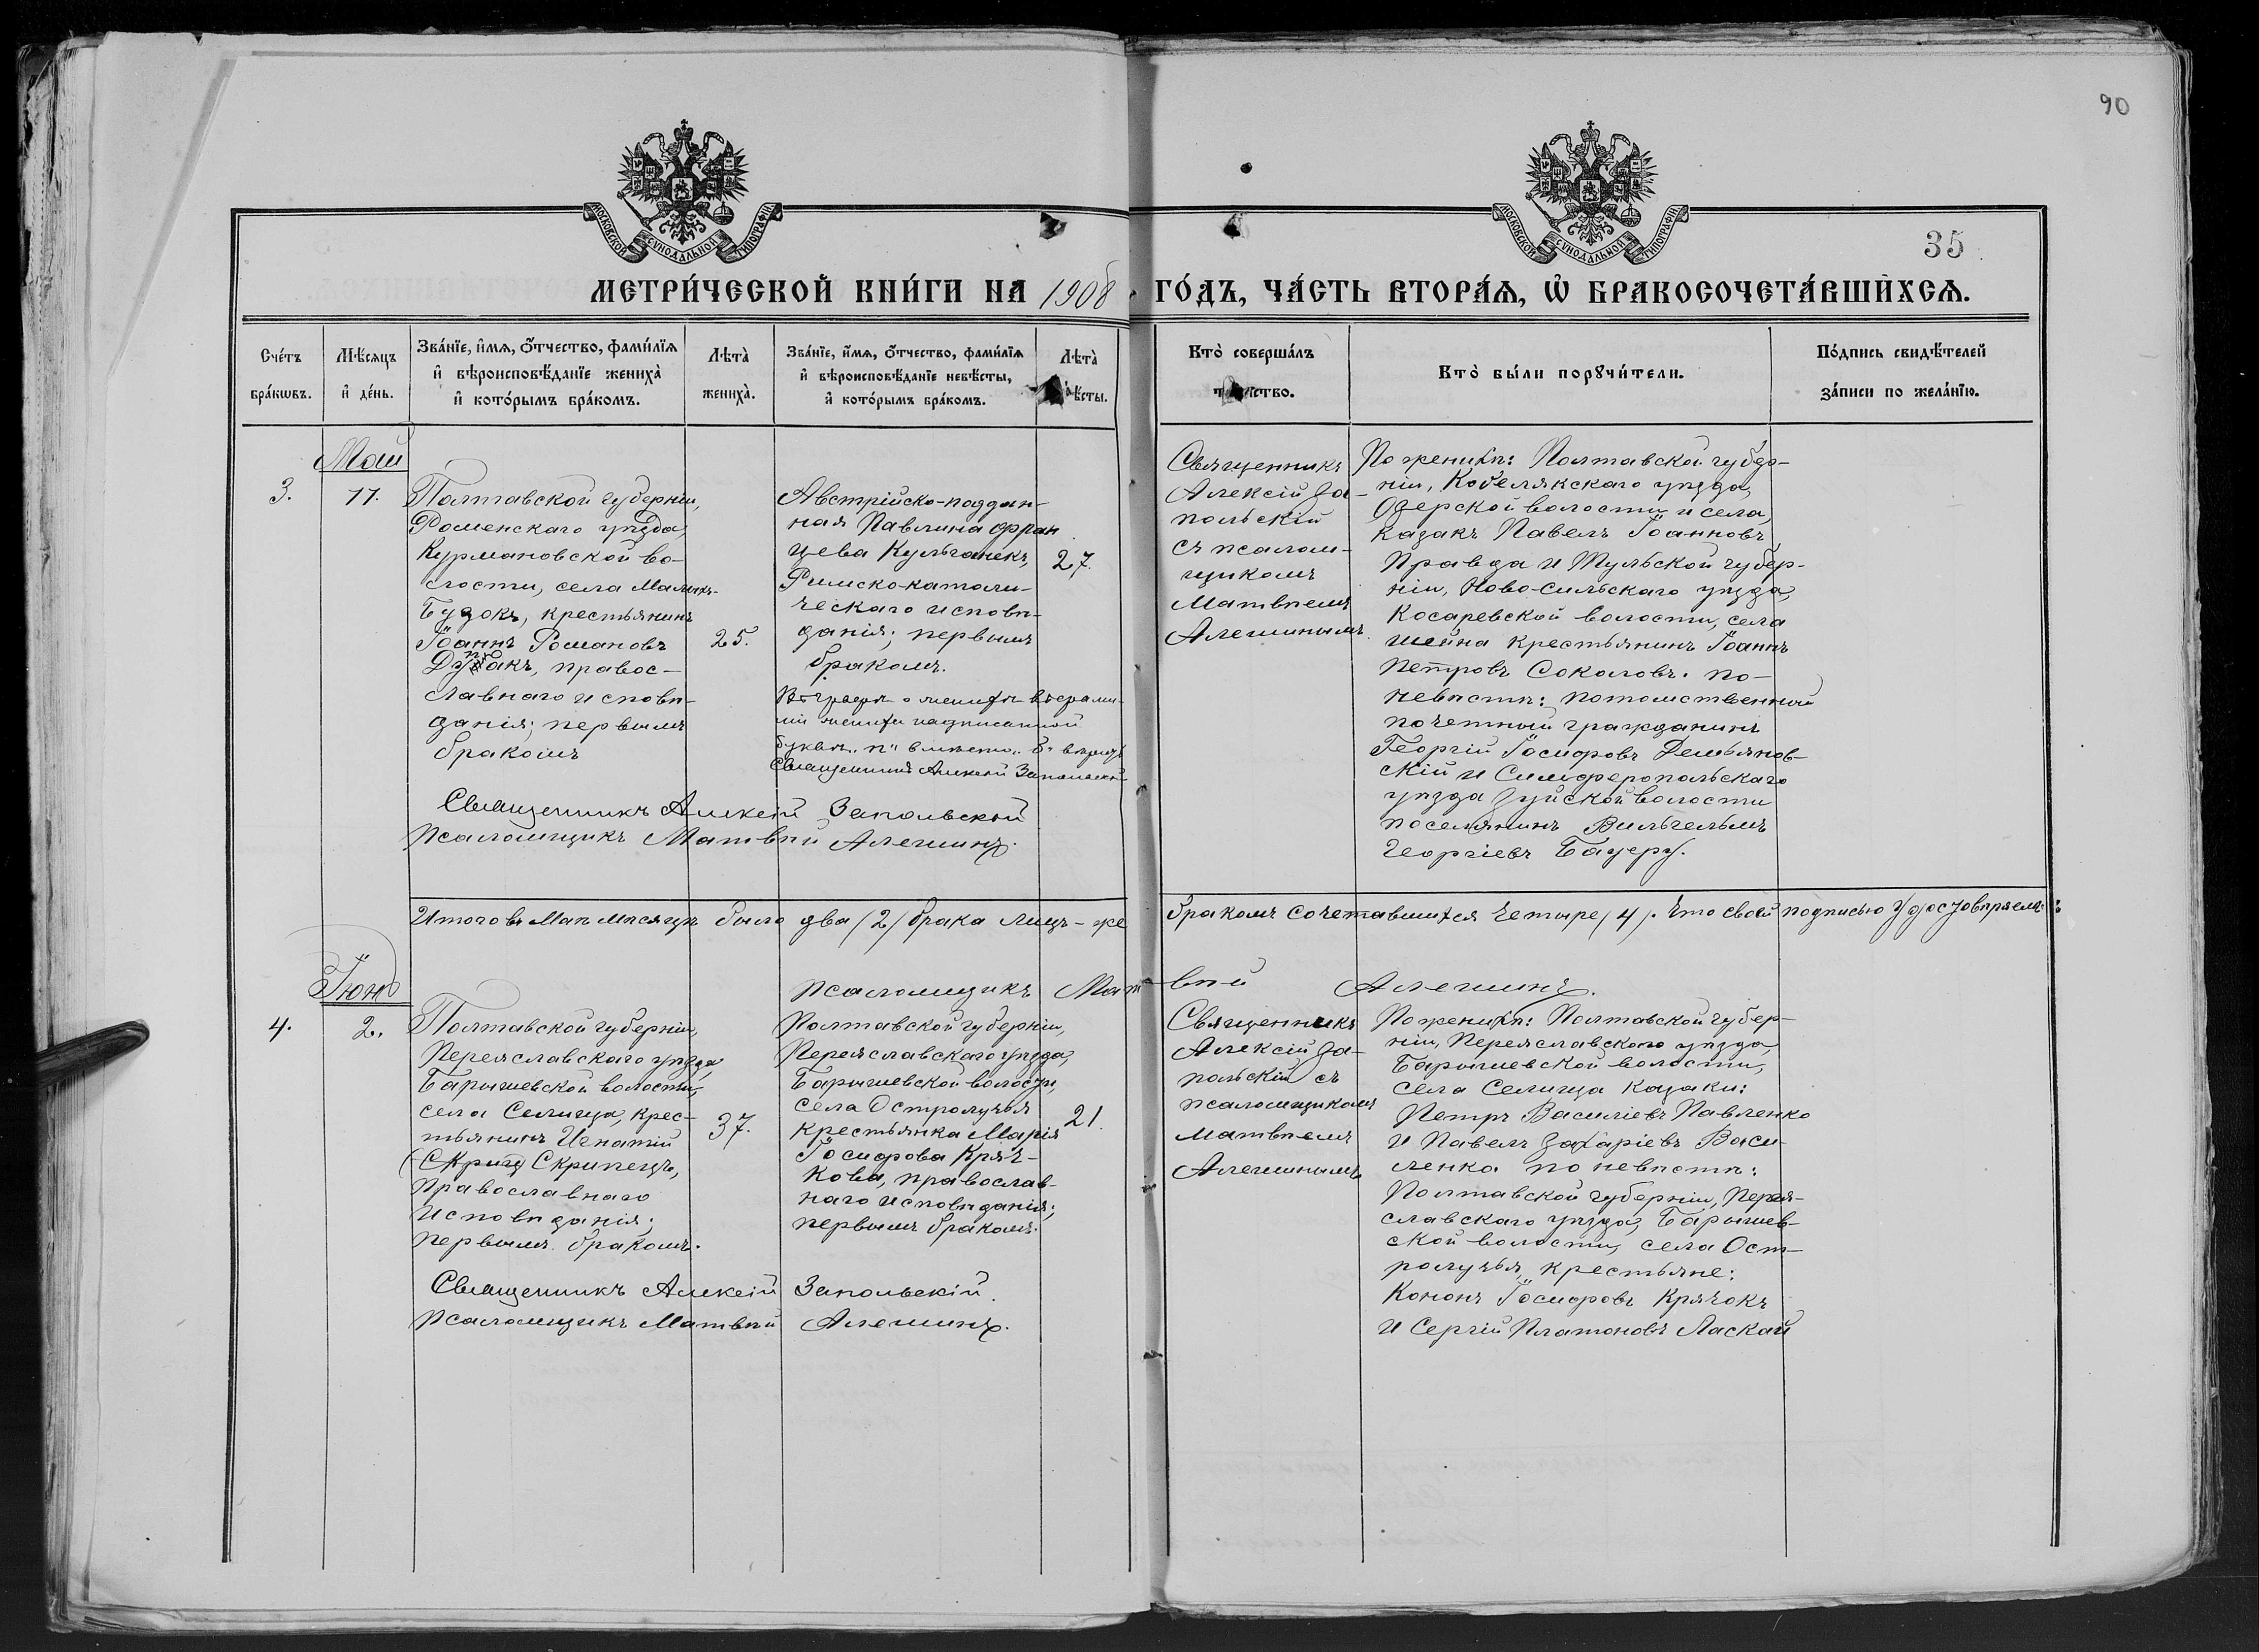 90
МОСКОВСКОЙ СѴНОДАЛЬНОЙ ТИПОГРАФІИ
МОСКОВСКОЙ СѴНОДАЛЬНОЙ ТИПОГРАФІИ
35
МЕТРИ́ЧЕСКОЙ КНИ́ГИ НА 1908 ГО́ДЪ, ЧА́СТЬ ВТОРА́Я, Ѡ҆ БРАКОСОЧЕТА́ВШИХСЯ.
Сче́тъ бра́кѡвъ.
Мѣ́сяцъ и҆ де́нь.
Зва́нїе, и҆́мя, ѻ҆́тчество, фами́лїя и҆ вѣроисповѣ́данїе жениха̀ и҆ кото́рымъ бра́комъ.
Лѣта̀ жениха̀.
Зва́нїе, и҆́мя, ѻ҆́тчество, фами́лїя и҆ вѣроисповѣ́данїе невѣ́сты, и҆ кото́рымъ бра́комъ.
Лѣта̀ невѣ́сты.
Кто̀ соверша́лъ таинство.
Кто̀ бы́ли порꙋчи́тели.
По́дпись свидѣ́телей за́писи по жела́нїю.
Май
3.
11.
Полтавской губерніи,
Роменскаго уѣзда,
Курмановской во-
лости, села Малыхъ-
Будокъ, крестьянинъ
Іоаннъ Романовъ
православнаго исповѣ-
данія; первымъ
бракомъ
25.
Австрійско-поддан-
ная Павлина Фран
цева Кульганекъ,
Римско-католи-
ческаго исповѣ-
данія; первымъ
бракомъ.
27.
Въ графѣ о женихѣ въ фами-
ліи жениха надписанной
буквѣ „п" вмѣсто „б" вѣрить
Священникъ Алексій Запольскій
Священникъ Алексій Запольскій
Псаломщикъ Матвѣй Алешинъ.
Священникъ
Алексій За-
польскій
съ псалом-
щикомъ
Матвѣемъ
Алешинымъ.
По женихѣ: Полтавской губер-
ніи, Кобелякскаго уѣзда,
Озерской волости и села,
казакъ Павелъ Іоанновъ
Правда и Тульской губер-
ніи, Ново-Сильскаго уѣзда,
Косаревской волости, села
Шейна крестьянинъ Іоаннъ
Петровъ Соколовъ. по-
невѣстѣ: потомственный
почетный гражданинъ
Георгій Іосифовъ Демьянов-
скій и Симферопольскаго
уѣзда Зуйской волости
поселянинъ Вильгельмъ
Георгіевъ Бауеръ.
Итого въ Маѣ мѣсяцѣ было два /2/ брака лицъ-же бракомъ сочетавшихся четыре /4/. Что своей подписью удостовѣряемъ:
Псаломщикъ Матвѣй Алешинъ.
Іюнь
4.
2.
Полтавской губерніи,
Переяславскаго уѣзда,
Барышевской волости,
села Селища, крес-
тьянинъ Игнатій
(Скрип) Скрипецъ,
православнаго
исповѣданія;
первымъ бракомъ.
37.
Полтавской губерніи,
Переяславскаго уѣзда,
Барышевской волости,
села Остролучья
крестьянка Марія
Іосифова Кряч-
кова, православ-
наго исповѣданія;
первымъ бракомъ.
21.
Священникъ Алексій Запольскій.
Псаломщикъ Матвѣй Алешинъ.
Священникъ
Алексій За-
польскій съ
псаломщикомъ
Матвѣемъ
Алешинымъ
По женихѣ: Полтавской губер-
ніи, Переяславскаго уѣзда,
Барышевской волости,
села Селища казаки:
Петръ Василіевъ Павленко
и Павелъ Захаріевъ Васи-
ленко по невѣстѣ:
Полтавской губерніи, Перея-
славскаго уѣзда, Барышев-
ской волости, села Ост-
ролучья, крестьяне:
Кононъ Іосифовъ Крячокъ
и Сергій Платоновъ Ласкай